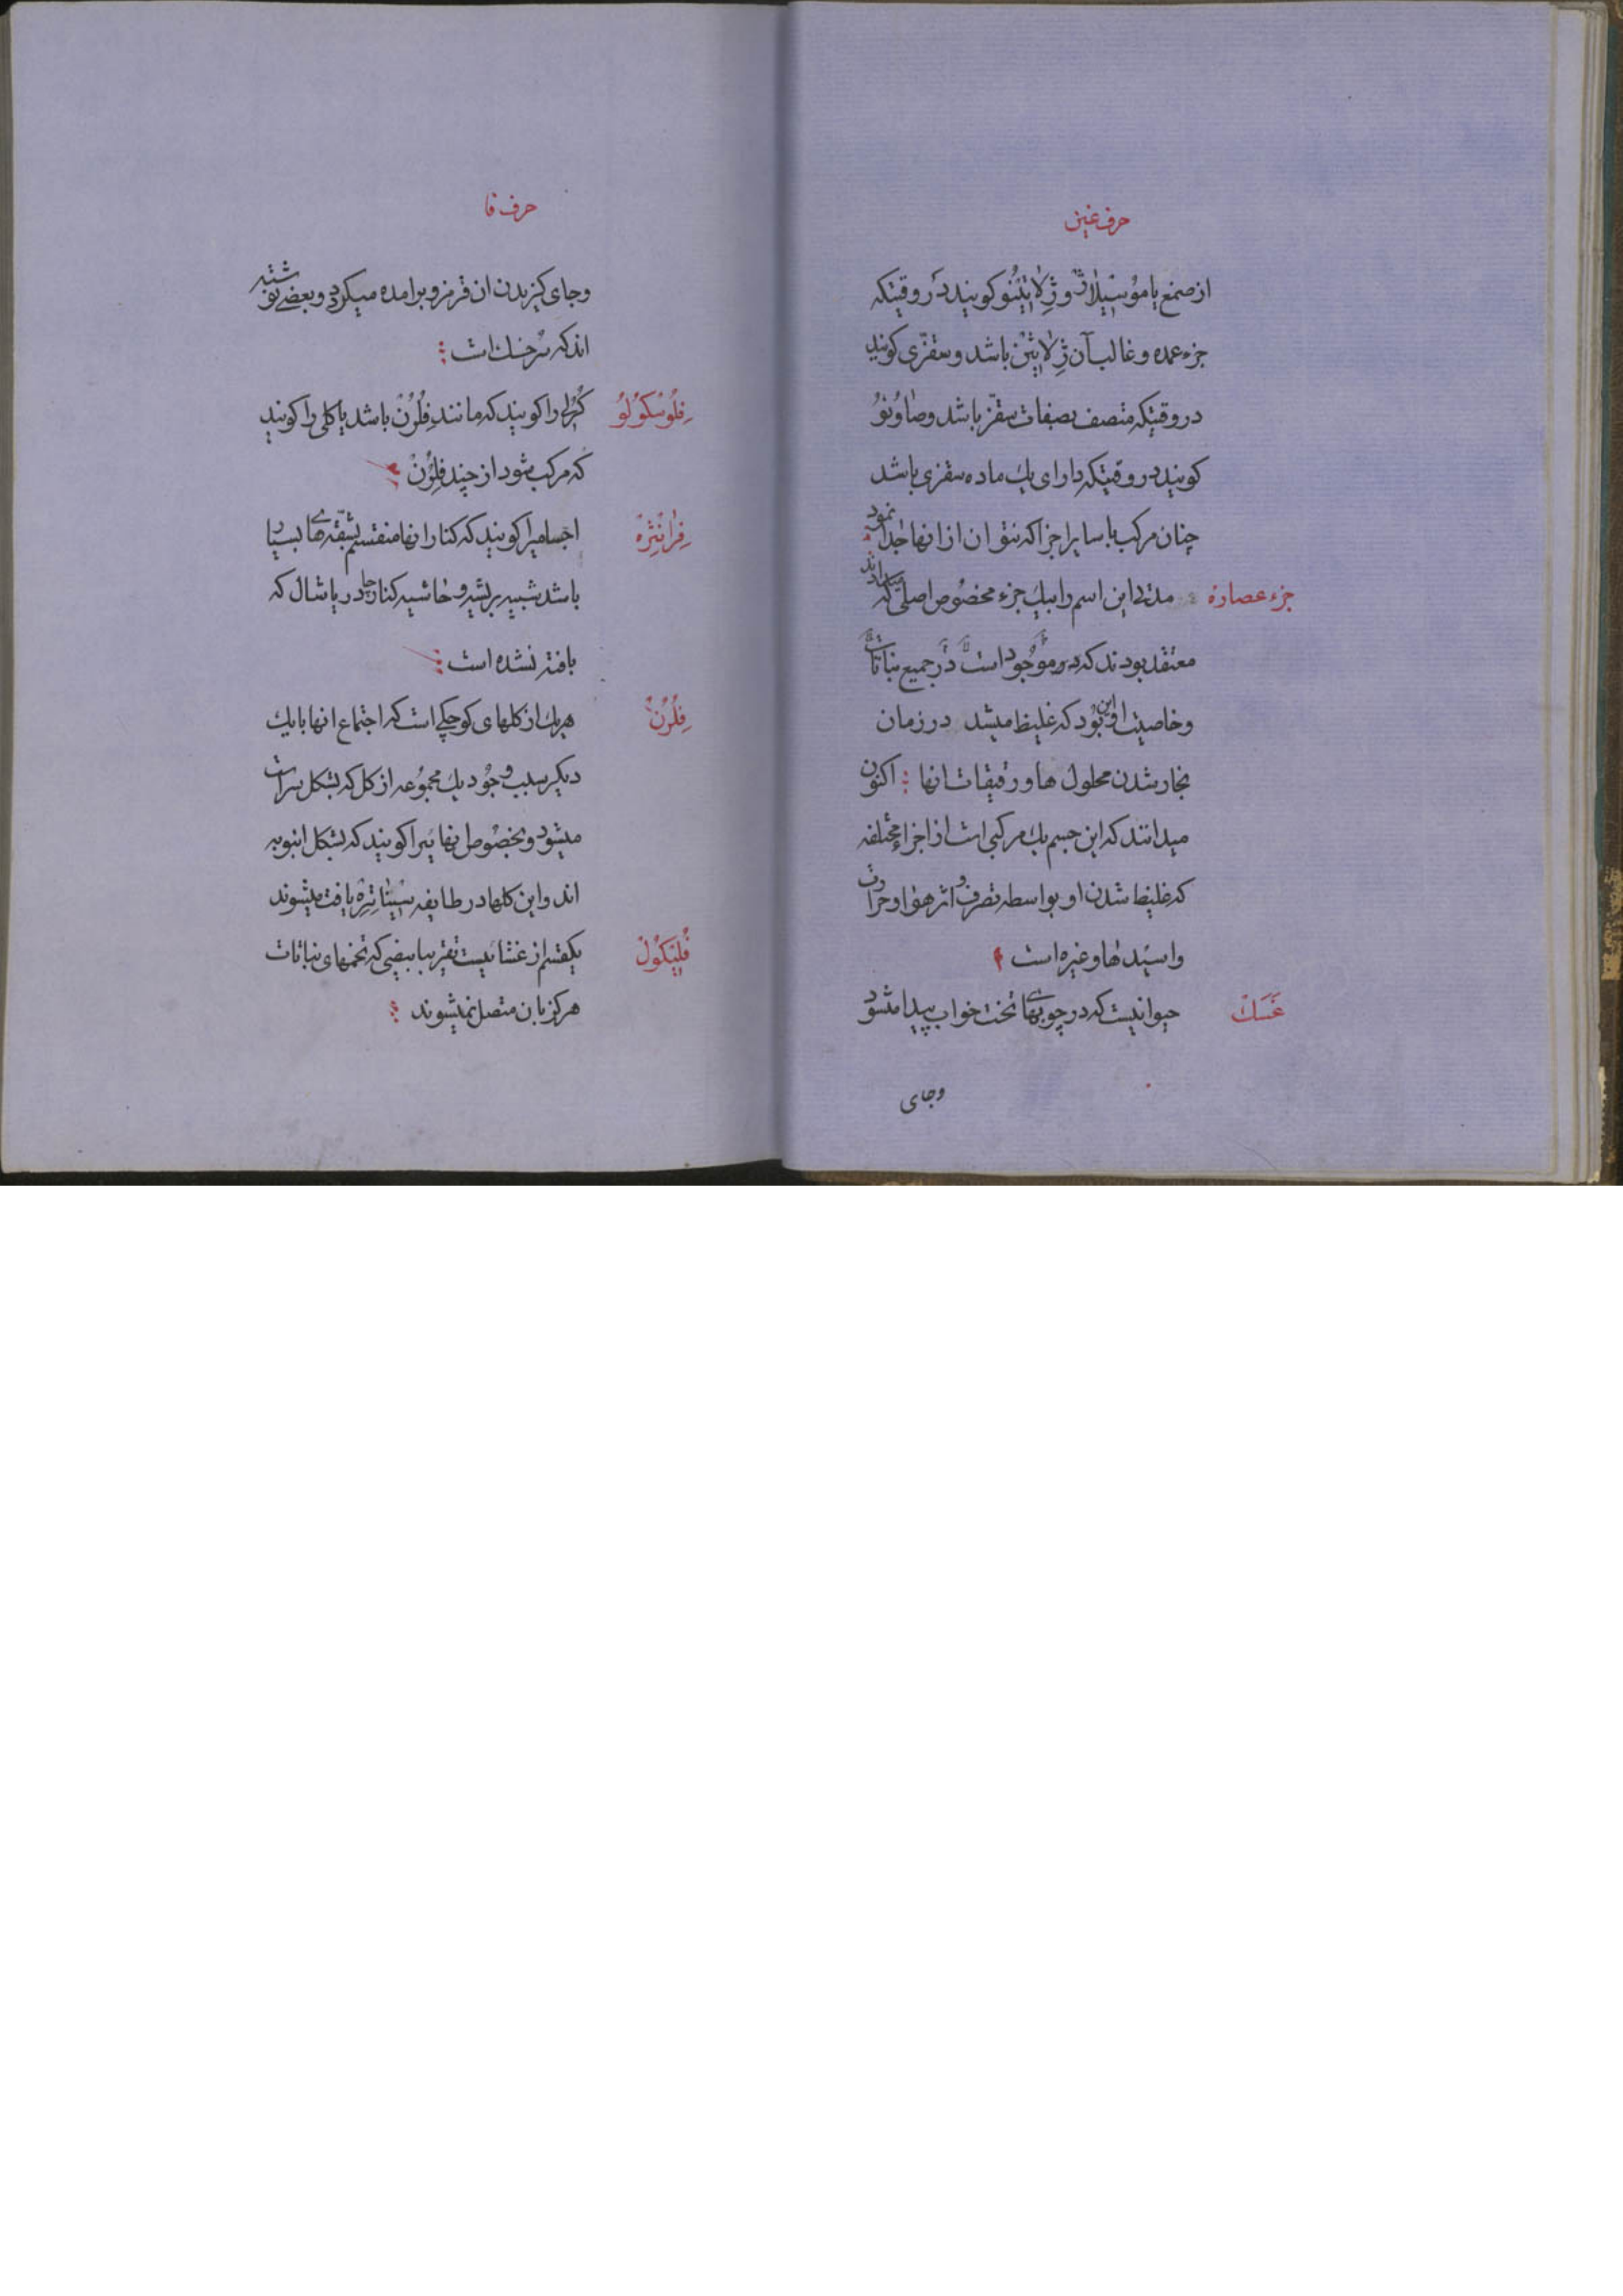 حرف غین
از صمغ یا موسیلاژ و ژلاتینو کویند در وقتیکه
جزء عمده و غالب آن ژلاتین باشد و سقزی کویند
در وقتیکه متصف بصفات سقز باشد و صاونو
کویند در وقتیکه دارای یک ماده سقزی باشد
چنان مرکب با سایر اجزا که نتوان از انها جدا نمود
جزء عصاره مدتی این اسم را بیک جزء مخصوص اصلی که میدادند
معتقد بودند که موجود است در جمیع نباتات
و خاصیت او این بود که غلیظ میشد در زمان
بخار شدن محلول ها و رقیقات انها اکنون
میدانند که این جسم یک مرکبی است از اجزاء مختلفه
که غلیظ شدن او بواسطه تصرف و اثر هوا و حرارت
و اسیدها و غیره است
غسک حیوانیست که در چوبهای تخت خواب پیدا مشود
وجای
حرف فا
وجای کزیدن ان قرمز و برامده میکردد و بعضی نوشته
اند که سرخسک است
فلوسکولو کرلی را کویند که مانند فلرن باشد یا کلی را کویند
که مرکب شود از چند فلرن
فرانژه اجسامیرا کویند که کنار انها منقسم بشقه های بسیار
باشد شبیه بریشه و حاشیه کنار جادر یا شال که
بافته نشده است
فلرن هریک از کلهای کوچکی است که اجتماع انها با یک
دیکر سبب وجود یک مجموعه از کل که بشکل سر است
میشود و بخصوص انهائیرا کویند که بشکل انبوبه
اند و این کلها در طایفه سیناتره یافت میشوند
فلیکول یکقسم از غشائیست تقریبا بیضی که تخمهای نباتات
هرکز بان متصل نمیشوند